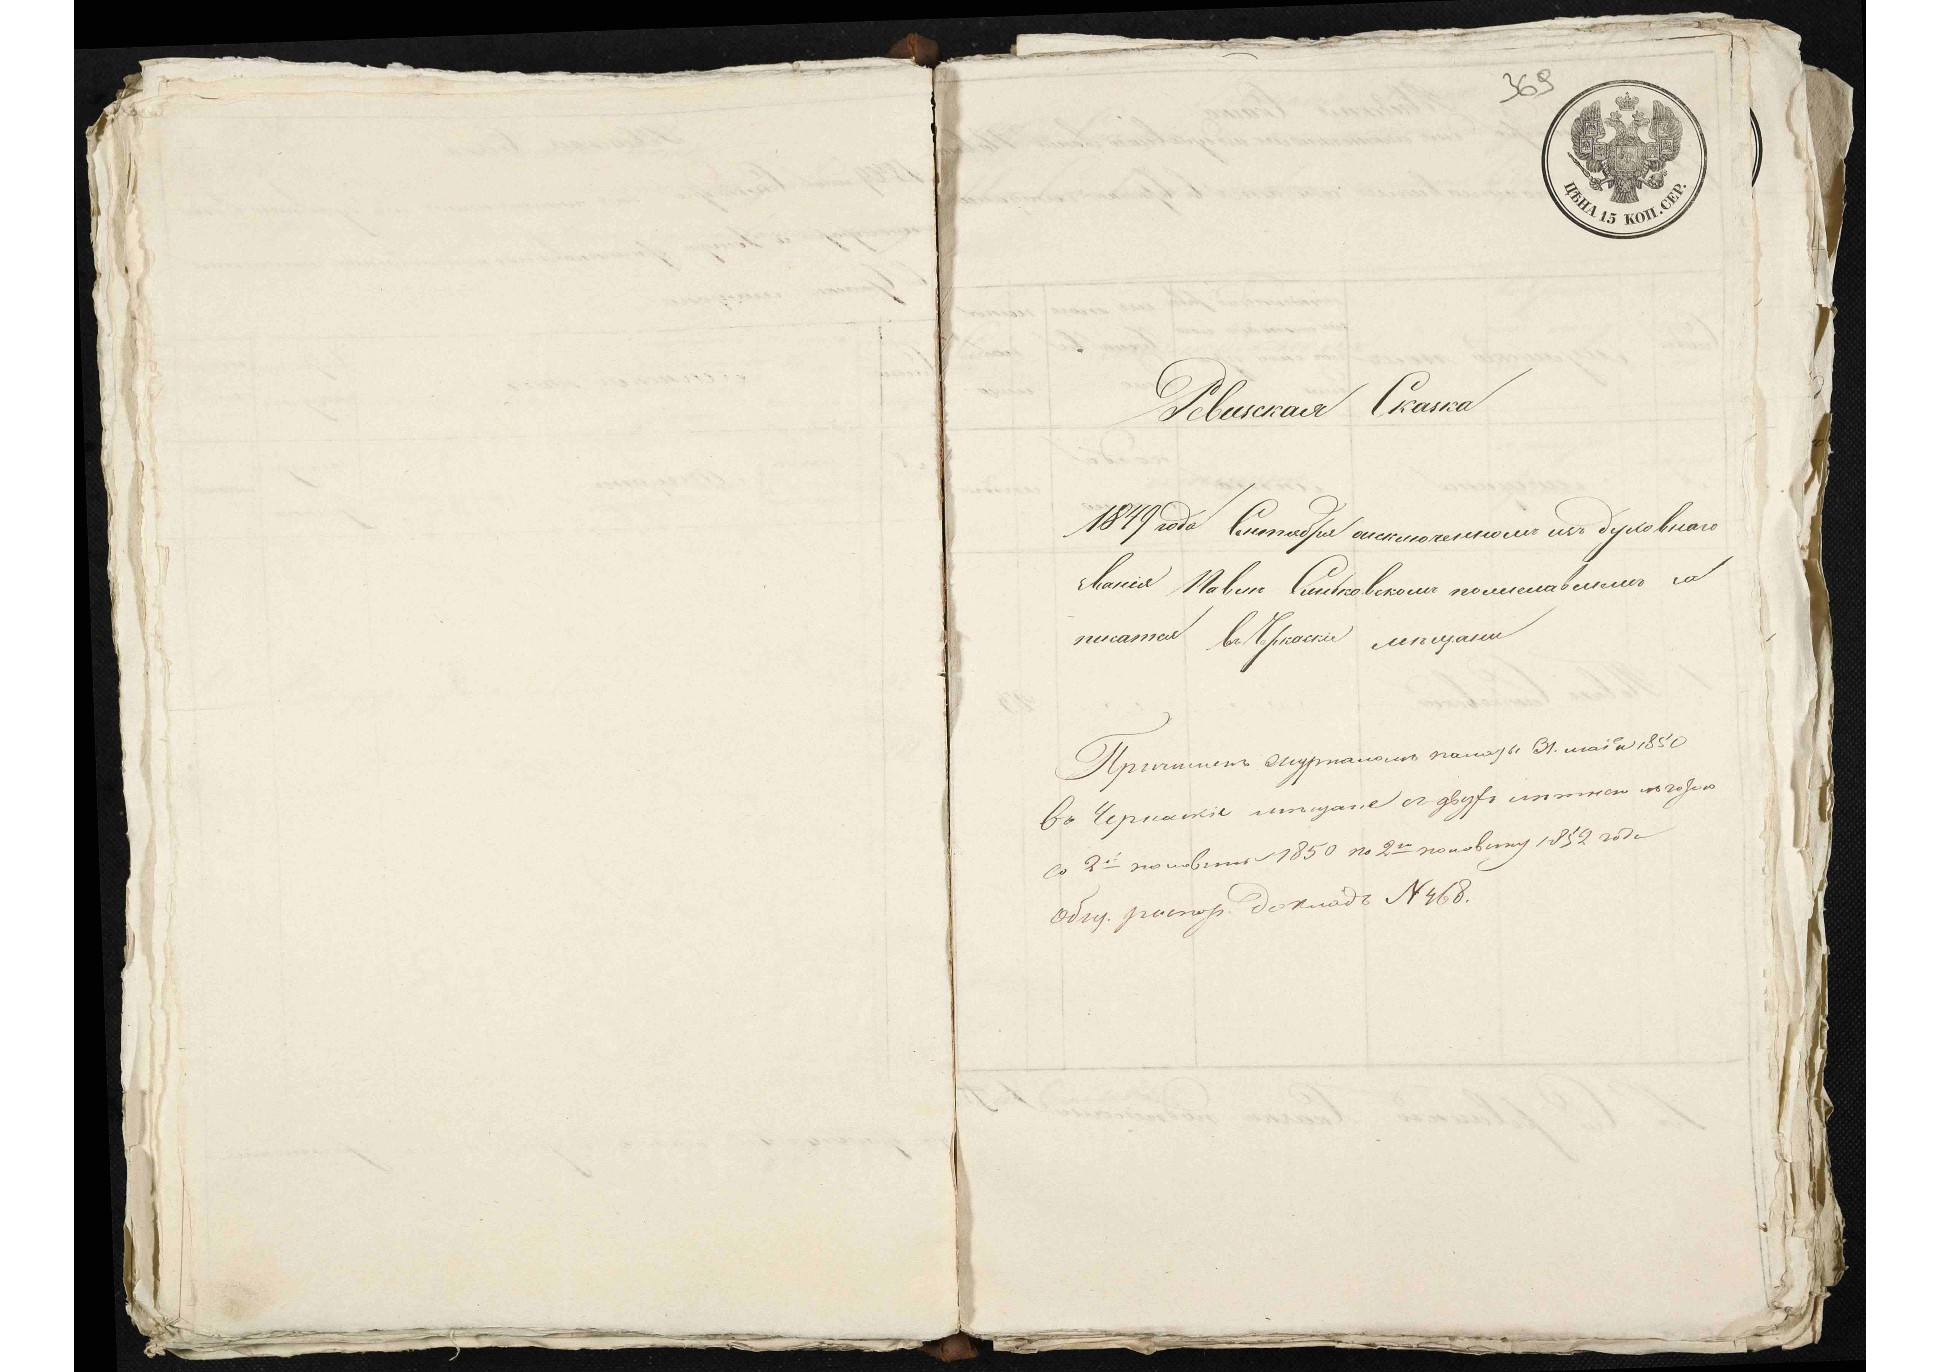 369
ЦѢНА 15 КОП. СЕР.
Ревизская Сказка
1849 года Сентября о исключенномъ изъ духовнаго
званія Павле Синьковскомъ пожелавшимъ за
писатся въ Чркаскіе мещани
Причисленъ журналомъ палаты 31. маія 1850
въ Черкаскіе мещане съ двухъ летнею льготою
со 2й половины 1850 по 2ю половину 1852 года
Общ. распор. докладъ N 468.